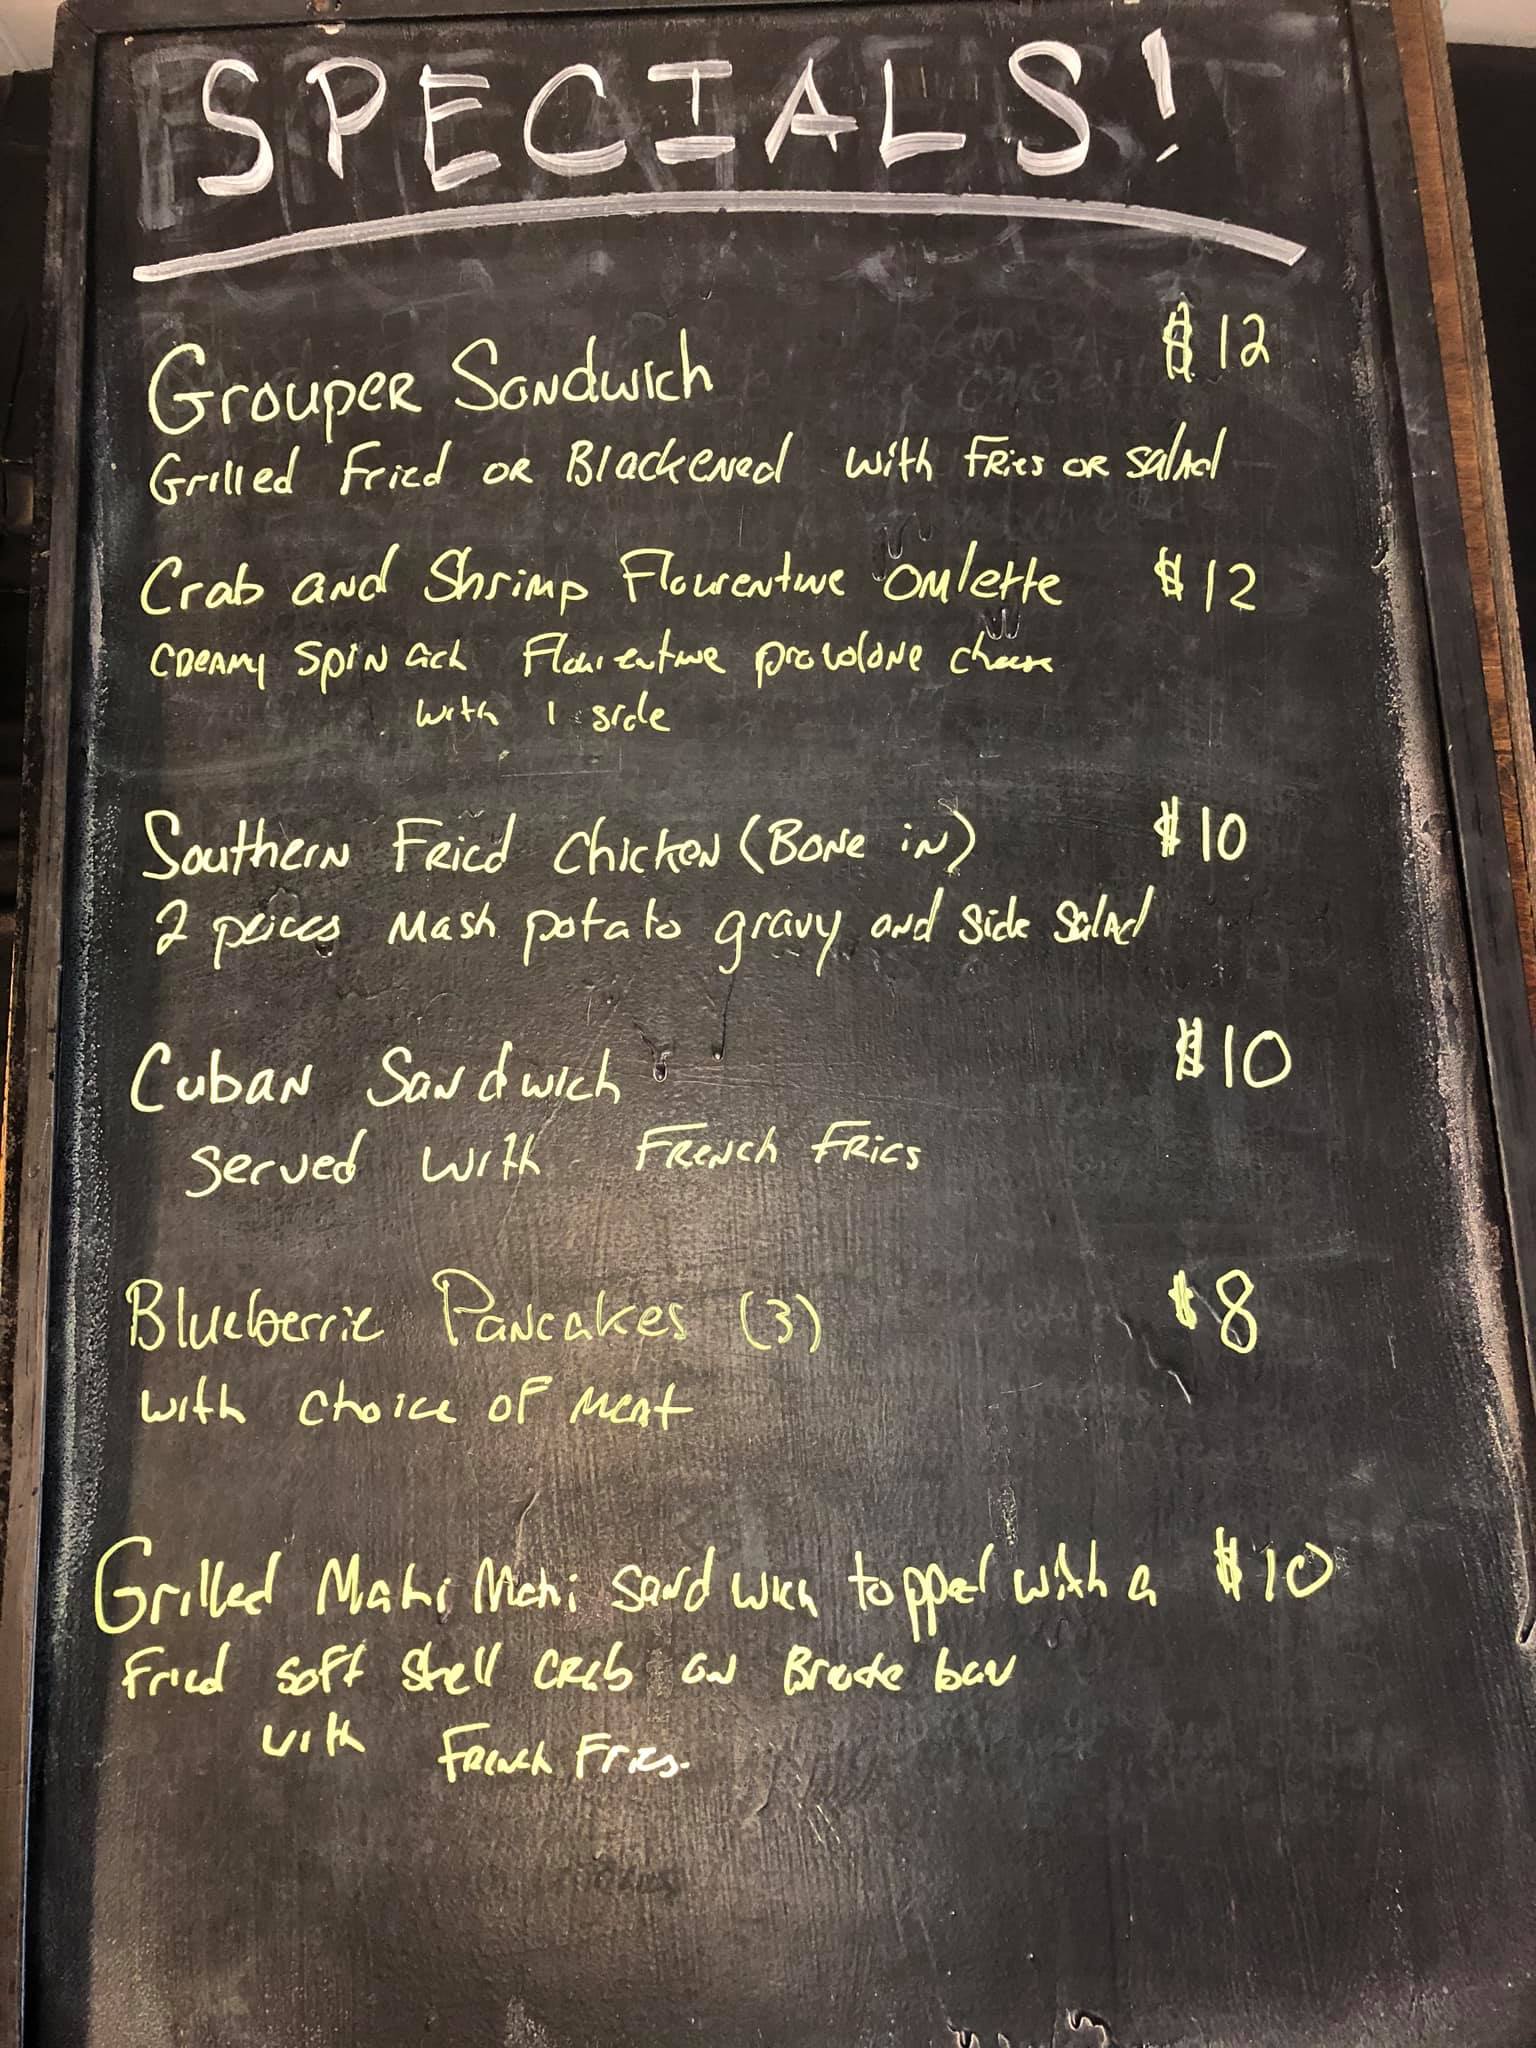 SPECIALS!
Grouper Sandwich $12
Grilled Fried or Blackened with Fries or salad
Crab and Shrimp Flourentine Omlette $12
creamy spinach Flourentine provolone cheese
with 1 side
Southern Fried Chicken (Bone in) $10
2 peices Mash potato gravy and side salad
Cuban Sandwich $10
served with French Fries
Blueberrie Pancakes (3) $8
with choice of meat
Grilled Mahi Mahi sandwich topped with a $10
Fried soft shell crab on bun
with French Fries.